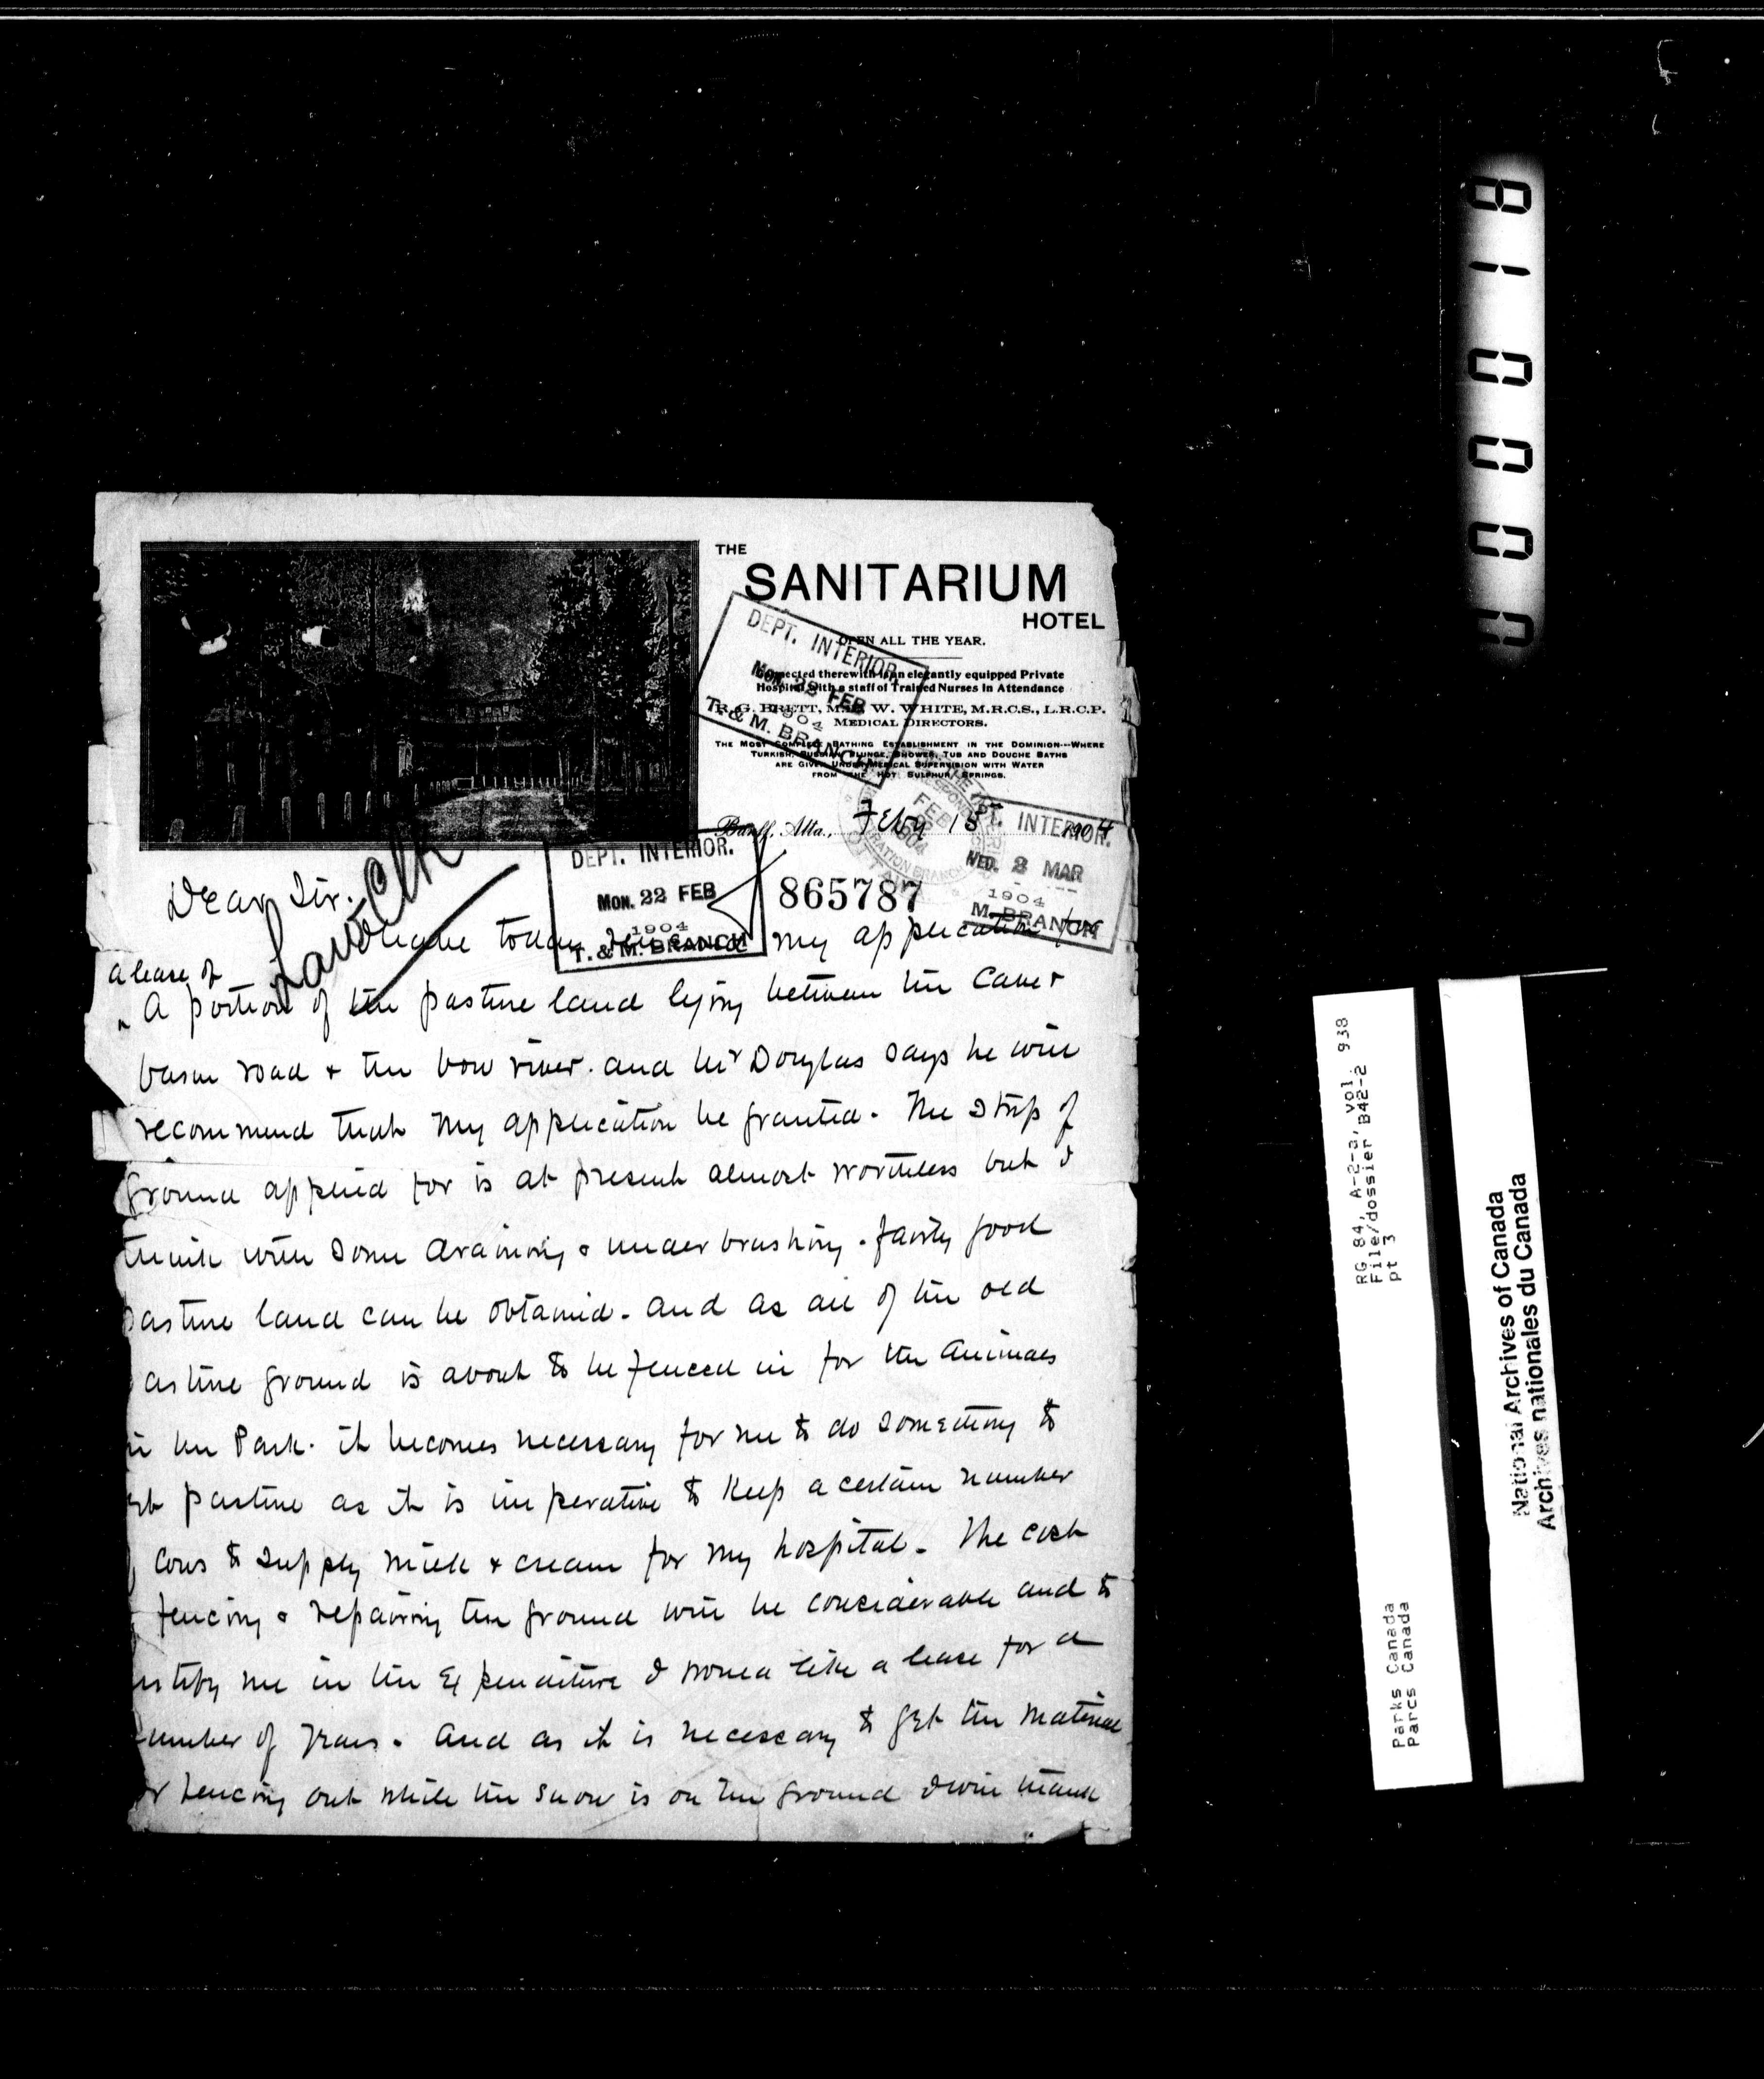 THE
SANITARIUM
HOTEL
OPEN ALL THE YEAR.
Connected therewith is an elegantly equipped Private
Hospital with a staff of Trained Nurses in Attendance
R. G. BRETT, M.D. W. WHITE, M.R.C.S., L.R.C.P.
MEDICAL DIRECTORS.
THE MOST COMPLETE BATHING ESTABLISHMENT IN THE DOMINION---WHERE
TURKISH, RUSSIAN, PLUNGE, SHOWER, TUB AND DOUCHE BATHS
ARE GIVEN UNDER MEDICAL SUPERVISION WITH WATER
FROM THE HOT SULPHUR SPRINGS.
DEPT. INTERIOR
MON. 22 FEB
1904
T. & M. BRANCH
Banff, Alta., Feby 15 1904
DEPT. INTERIOR.
MON. 22 FEB
1904
T. & M. BRANCH
865787
FEB
1904
DEPT. INTERIOR.
WED. 2 MAR
1904
M. BRANCH
Dear Sir.
I have today my application for
a lease of
A portion of the pasture land lying between the Cave &
basin road & the bow river. and Mr Douglas says he will
recommend that my application be granted. The strip of
ground applied for is at present almost worthless but I
think with some draining & underbrushing. fairly good
pasture land can be obtained. and as all of the old
asture ground is about to be fenced in for the animals
in the Park. it becomes necessary for me to do something to
get pasture as it is imperative to keep a certain number
of cows to supply milk & cream for my hospital. The cost
fencing & repairing the ground will be considerable and to
ustify me in the expenditure I would like a lease for a
umber of years. And as it is necessary to get the material
or fencing out while the snow is on the ground I will thank
00018
RG 84, A-2-a, vol. 938
File/dossier B42-2
pt 3
Parks Canada
Parcs Canada
National Archives of Canada
Archives nationales du Canada